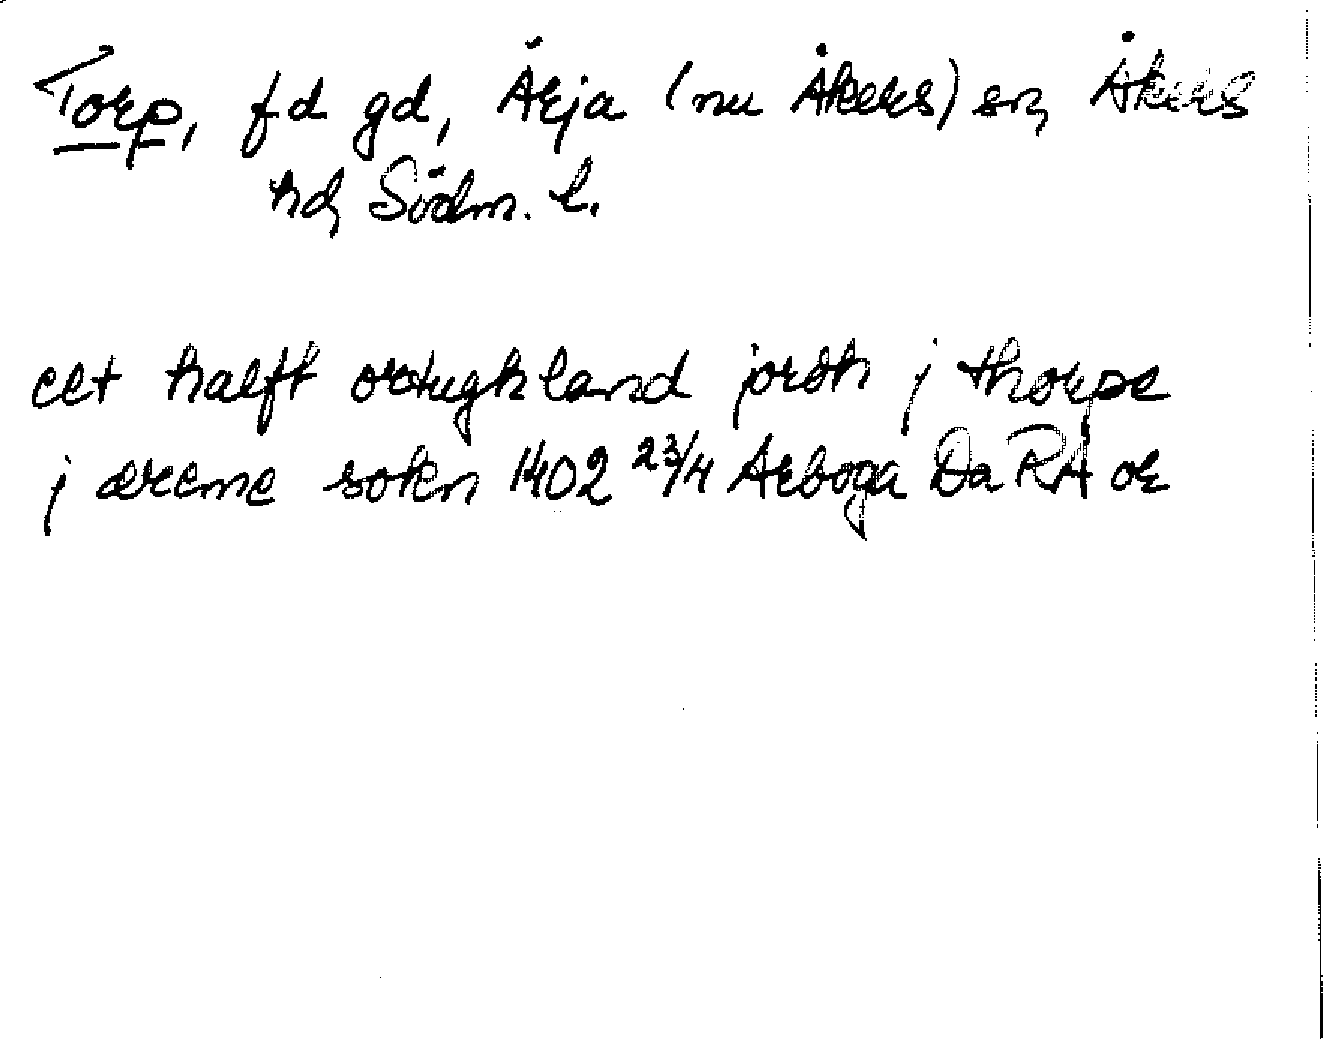 Torp, fd gd, Ärja (nu Åkers) sn, Åkers
hd, Södm. l.
eet halfft ortughland jordh j thorpe
j æreme sokn 1402 23/4 Arboga Da RA or